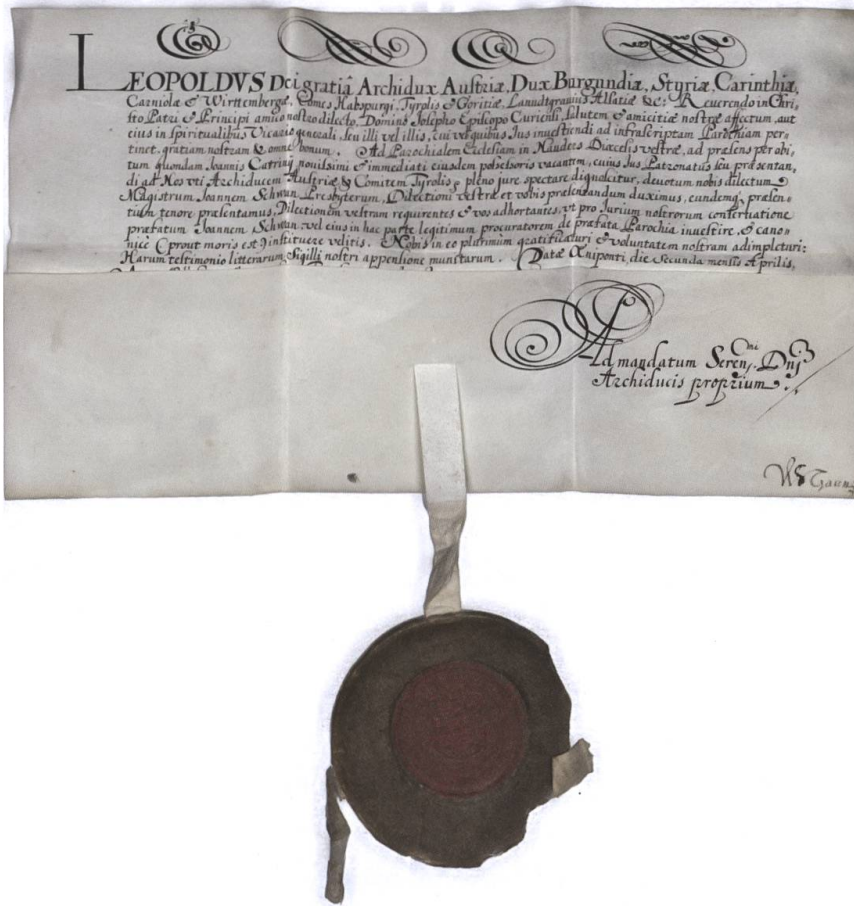 LEOPOLDVS Dei gratiâ Archidux Austriæ, Dux Burgundiæ, Styriæ, Carinthiæ,
Carniolæ & Wirttembergæ, Comes Habspurgi, Tyrolis & Goritiæ, Lanndtgravius Alsatiæ &c: Reuerendo in Chri-
sto Patri & Principi amico nostro dilecto, Domino Josepho Episcopo Curiensi, salutem & amicitiæ nostræ affectum, aut
eius in spiritualibus Vicario generali, seu illi vel illis, cui vel quibus Jus inuestiendi ad infrascriptam Parochiam per-
tinet, gratiam nostram & omne bonum. Ad Parochialem Ecclesiam in Nauders Diœcesis vestræ, ad præsens per obi-
tum quondam Joannis Catrinj nouissimi & immediati eiusdem possessoris vacantem, cuius Jus Patronatus seu præsentan-
di ad Nos vti Archiducem Austriæ & Comitem Tyrolis pleno jure spectare dignoscitur, deuotum nobis dilectum
Magistrum Joannem Schwan Presbyterum, Dilectioni vestræ et vobis præsentandum duximus, eundemq, præsen-
tium tenore præsentamus, Dilectionem vestram requirentes & vos adhortantes, vt pro Jurium nostrorum conseruatione
præfatum Joannem Schwan, vel eius in hac parte legitimum procuratorem de præfata Parochia inuestire, & cano-
nicè (prout moris est) instituere velitis. Nobis in eo plurimum gratificaturi & voluntatem nostram adimpleturi:
Harum testimonio litterarum, Sigilli nostri appensione munitarum. Datæ Œniponti, die secunda mensis Aprilis,
Ad mandatum Seren.mi Dnj
Archiducis proprium.